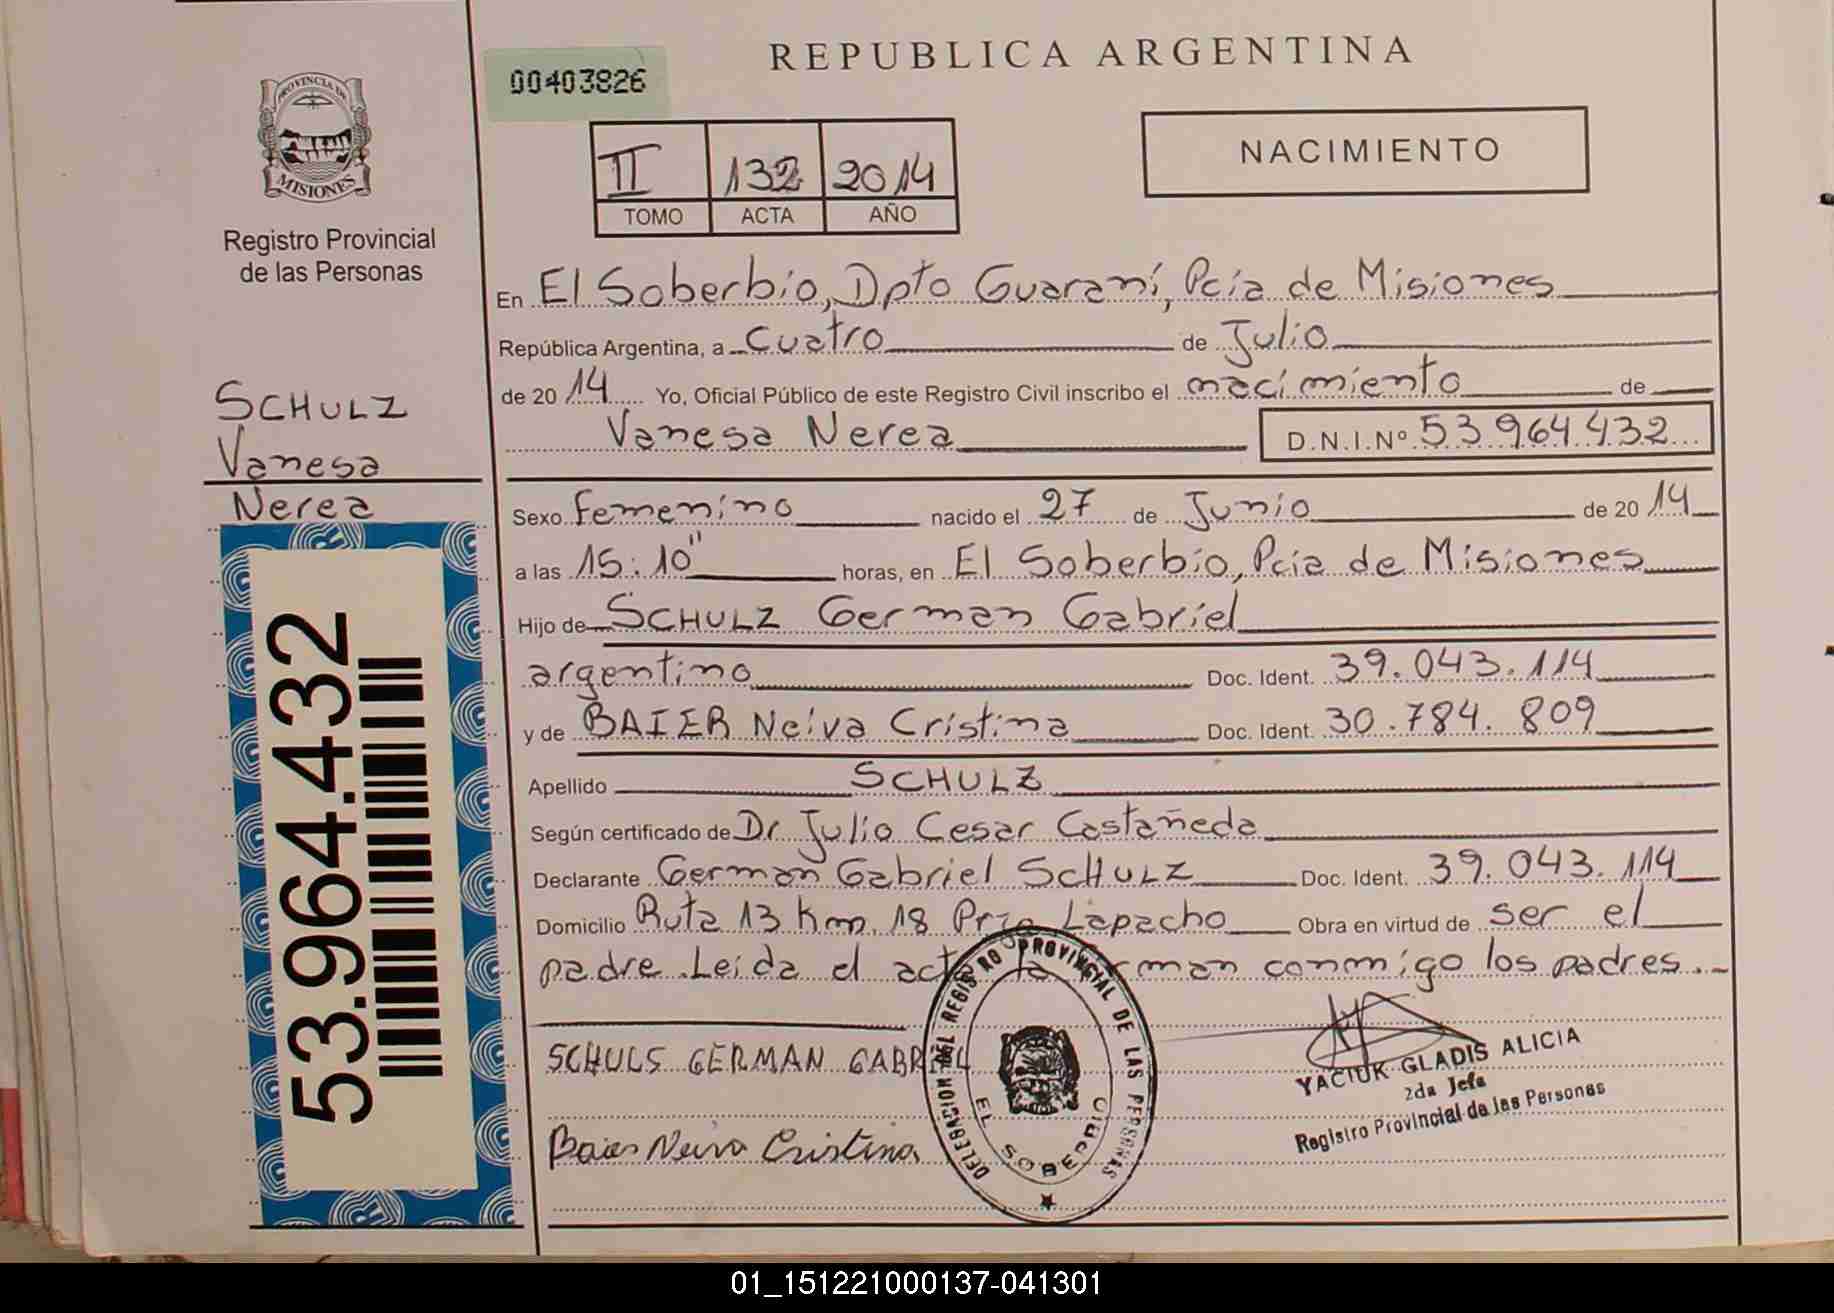 PROVINCIA DE
MISIONES
Registro Provincial
de las Personas
SCHULZ
Vanesa
Nerea
53.964.432
00403826
REPUBLICA ARGENTINA
II 132 2014
TOMO ACTA AÑO
NACIMIENTO
En El Soberbio, Dpto Guaraní, Pcia de Misiones
República Argentina, a cuatro de Julio
de 2014 Yo, Oficial Público de este Registro Civil inscribo el nacimiento de
Vanesa Nerea D.N.I.Nº 53.964.432
Sexo Femenino nacido el 27 de Junio de 2014
a las 15:10" horas, en El Soberbio, Pcia de Misiones
Hijo de SCHULZ German Gabriel
argentino Doc. Ident. 39.043.114
y de BAIER Neiva Cristina Doc. Ident. 30.784.809
Apellido SCHULZ
Según certificado de Dr Julio Cesar Castañeda
Declarante German Gabriel SCHULZ Doc. Ident. 39.043.114
Domicilio Ruta 13 Km. 18 Lapacho Obra en virtud de ser el
padre. Leída el conmigo los padres.
SCHULS GERMAN GABRIEL
Baier Neiva Cristina
DELEGACION DEL REGISTRO PROVINCIAL DE LAS PERSONAS
EL SOBERBIO
YACIUK GLADIS ALICIA
2da Jefa
Registro Provincial de las Personas
01_151221000137-041301